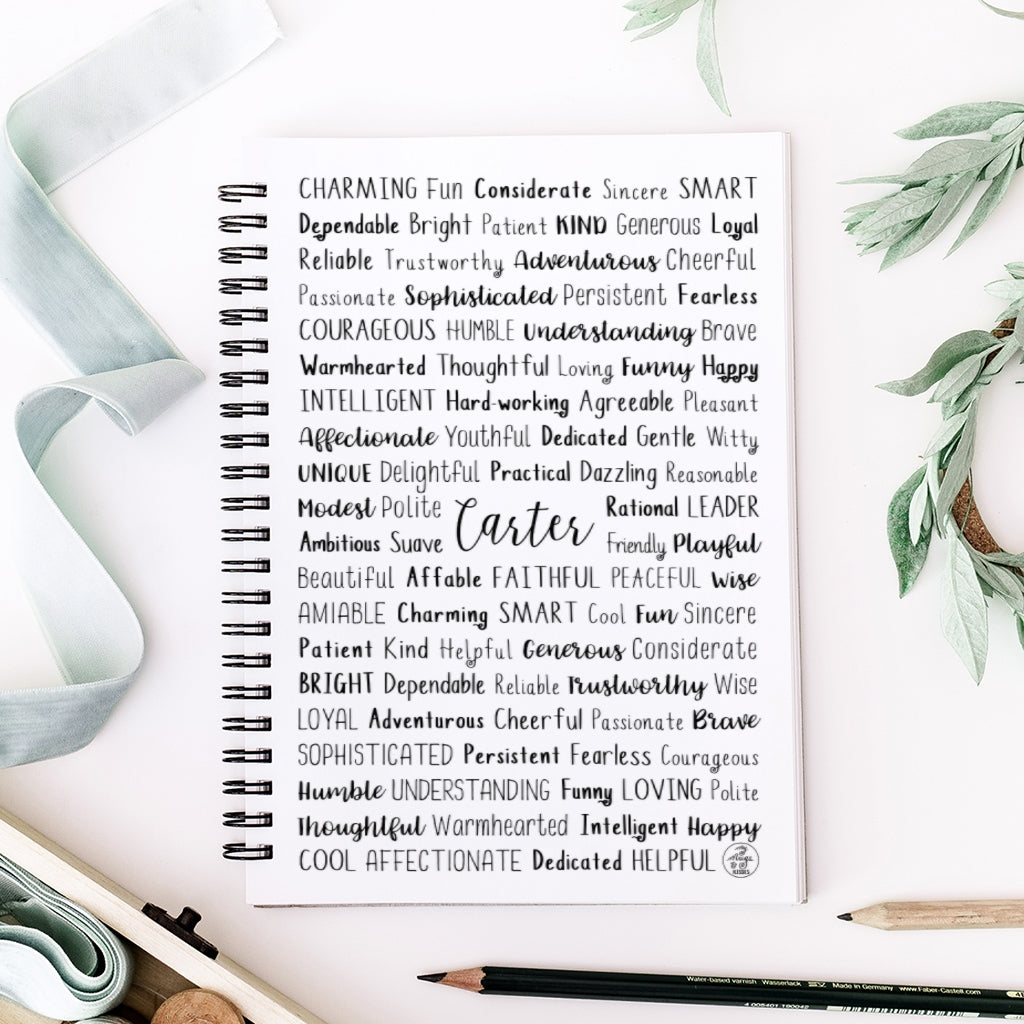 CHARMING Fun Considerate Sincere SMART
Dependable Bright Patient KIND Generous Loyal
Reliable Trustworthy Adventurous Cheerful
Passionate Sophisticated Persistent Fearless
COURAGEOUS HUMBLE Understanding Brave
Warmhearted Thoughtful Loving Funny Happy
INTELLIGENT Hard-working Agreeable Pleasant
Affectionate Youthful Dedicated Gentle Witty
UNIQUE Delightful Practical Dazzling Reasonable
Modest Polite Rational LEADER
Carter
Ambitious Suave Friendly Playful
Beautiful Affable FAITHFUL PEACEFUL Wise
AMIABLE Charming SMART Cool Fun Sincere
Patient Kind Helpful Generous Considerate
BRIGHT Dependable Reliable Trustworthy Wise
LOYAL Adventurous Cheerful Passionate Brave
SOPHISTICATED Persistent Fearless Courageous
Humble UNDERSTANDING Funny LOVING Polite
Thoughtful Warmhearted Intelligent Happy
COOL AFFECTIONATE Dedicated HELPFUL
Water-based varnish Wasserlack Made in Germany www.Faber-Castell.com